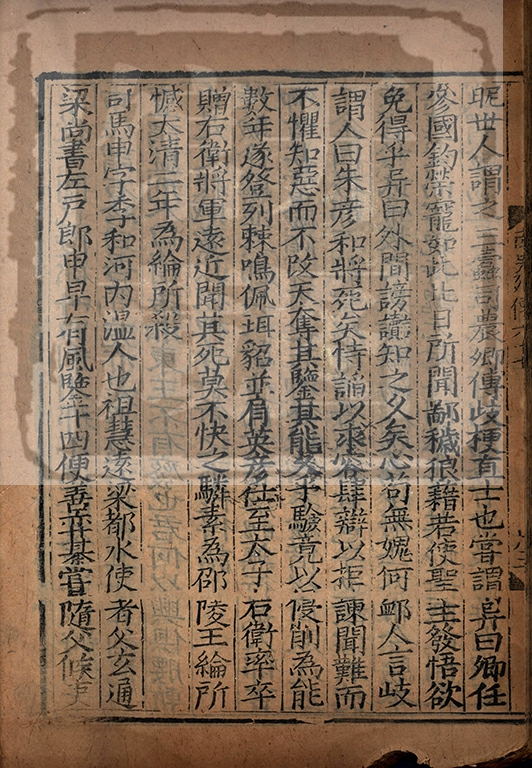 昵世人謂之三蠹司農卿傅岐梗直士也嘗謂异曰卿任
參國鈞榮寵如此比日所聞鄙穢狼藉若使聖主發悟欲
免得乎异曰外間謗讟知之久矣心苟無愧何衈人言岐
謂人曰朱彦和將死矣恃謟以求容肆辯以拒諫聞難而
不懼知惡而不改天奪其鑒其能久乎驗竟以侵削為能
數年遂登列棘鳴佩珥貂並肩英彦仕至太子右衛率卒
贈右衛將軍遠近聞其死莫不快之驎素為邵陵王綸所
憾太清二年為綸所殺
司馬申字季和河內溫人也祖慧遠梁都水使者父玄通
梁尚書左戶郎申早有風鑒十四便善弈棊嘗隨父候吏